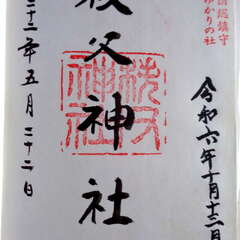 総鎮守
ゆかりの社
令和六年十月十三日
父神社
秩父
神社
年五月二十二日